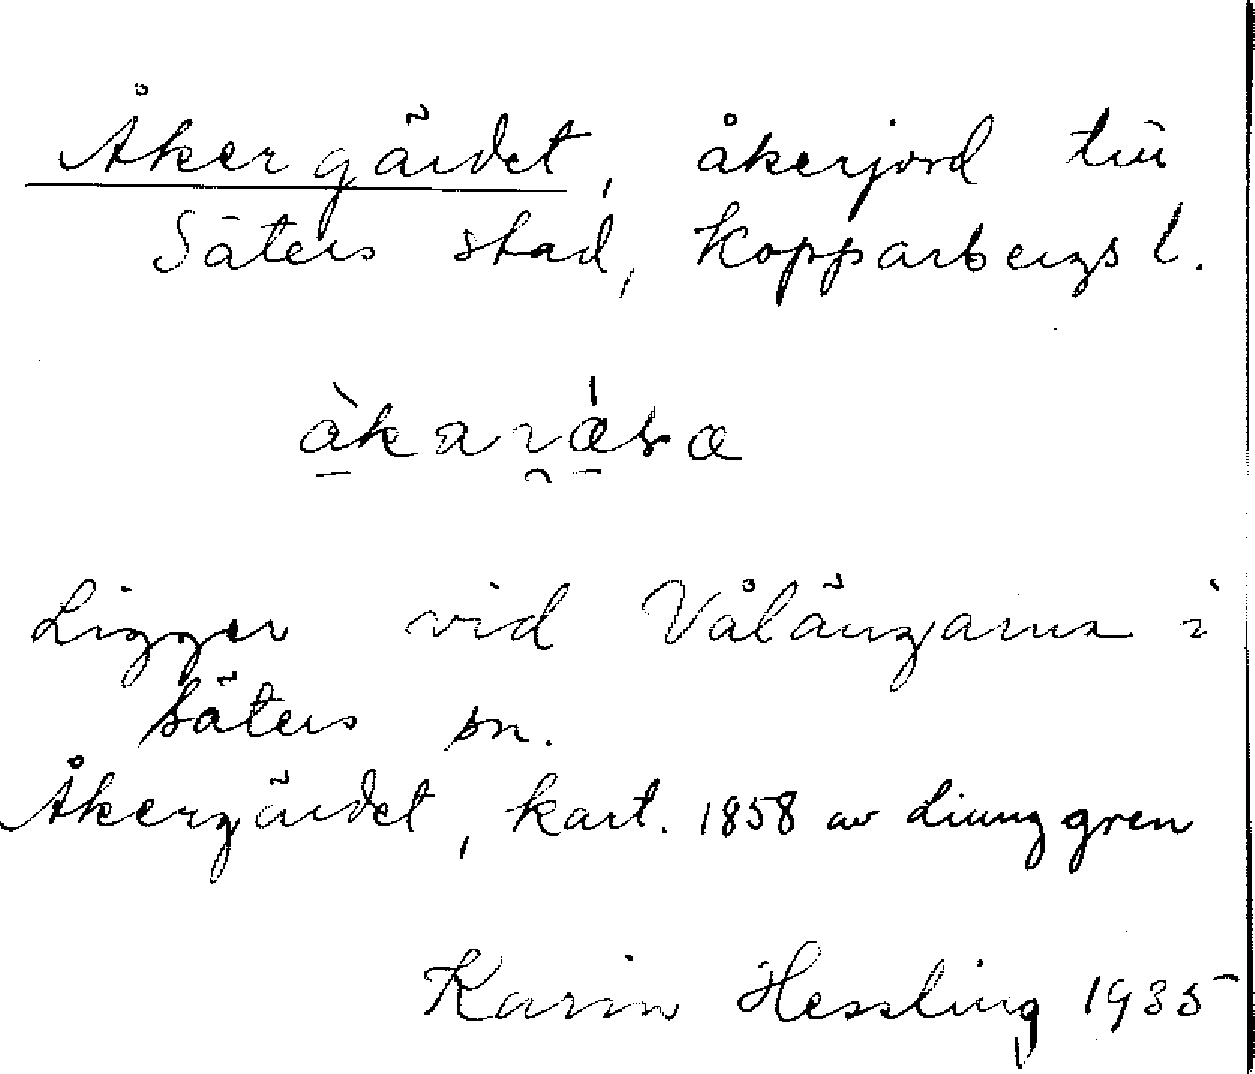 Åkergärdet, åkerjord till
Säters stad, Kopparbergs l.
Ligger vid Vålängarna i
Säters sn.
Åkergärdet, kart. 1858 av Liunggren
Karin Hessling 1935